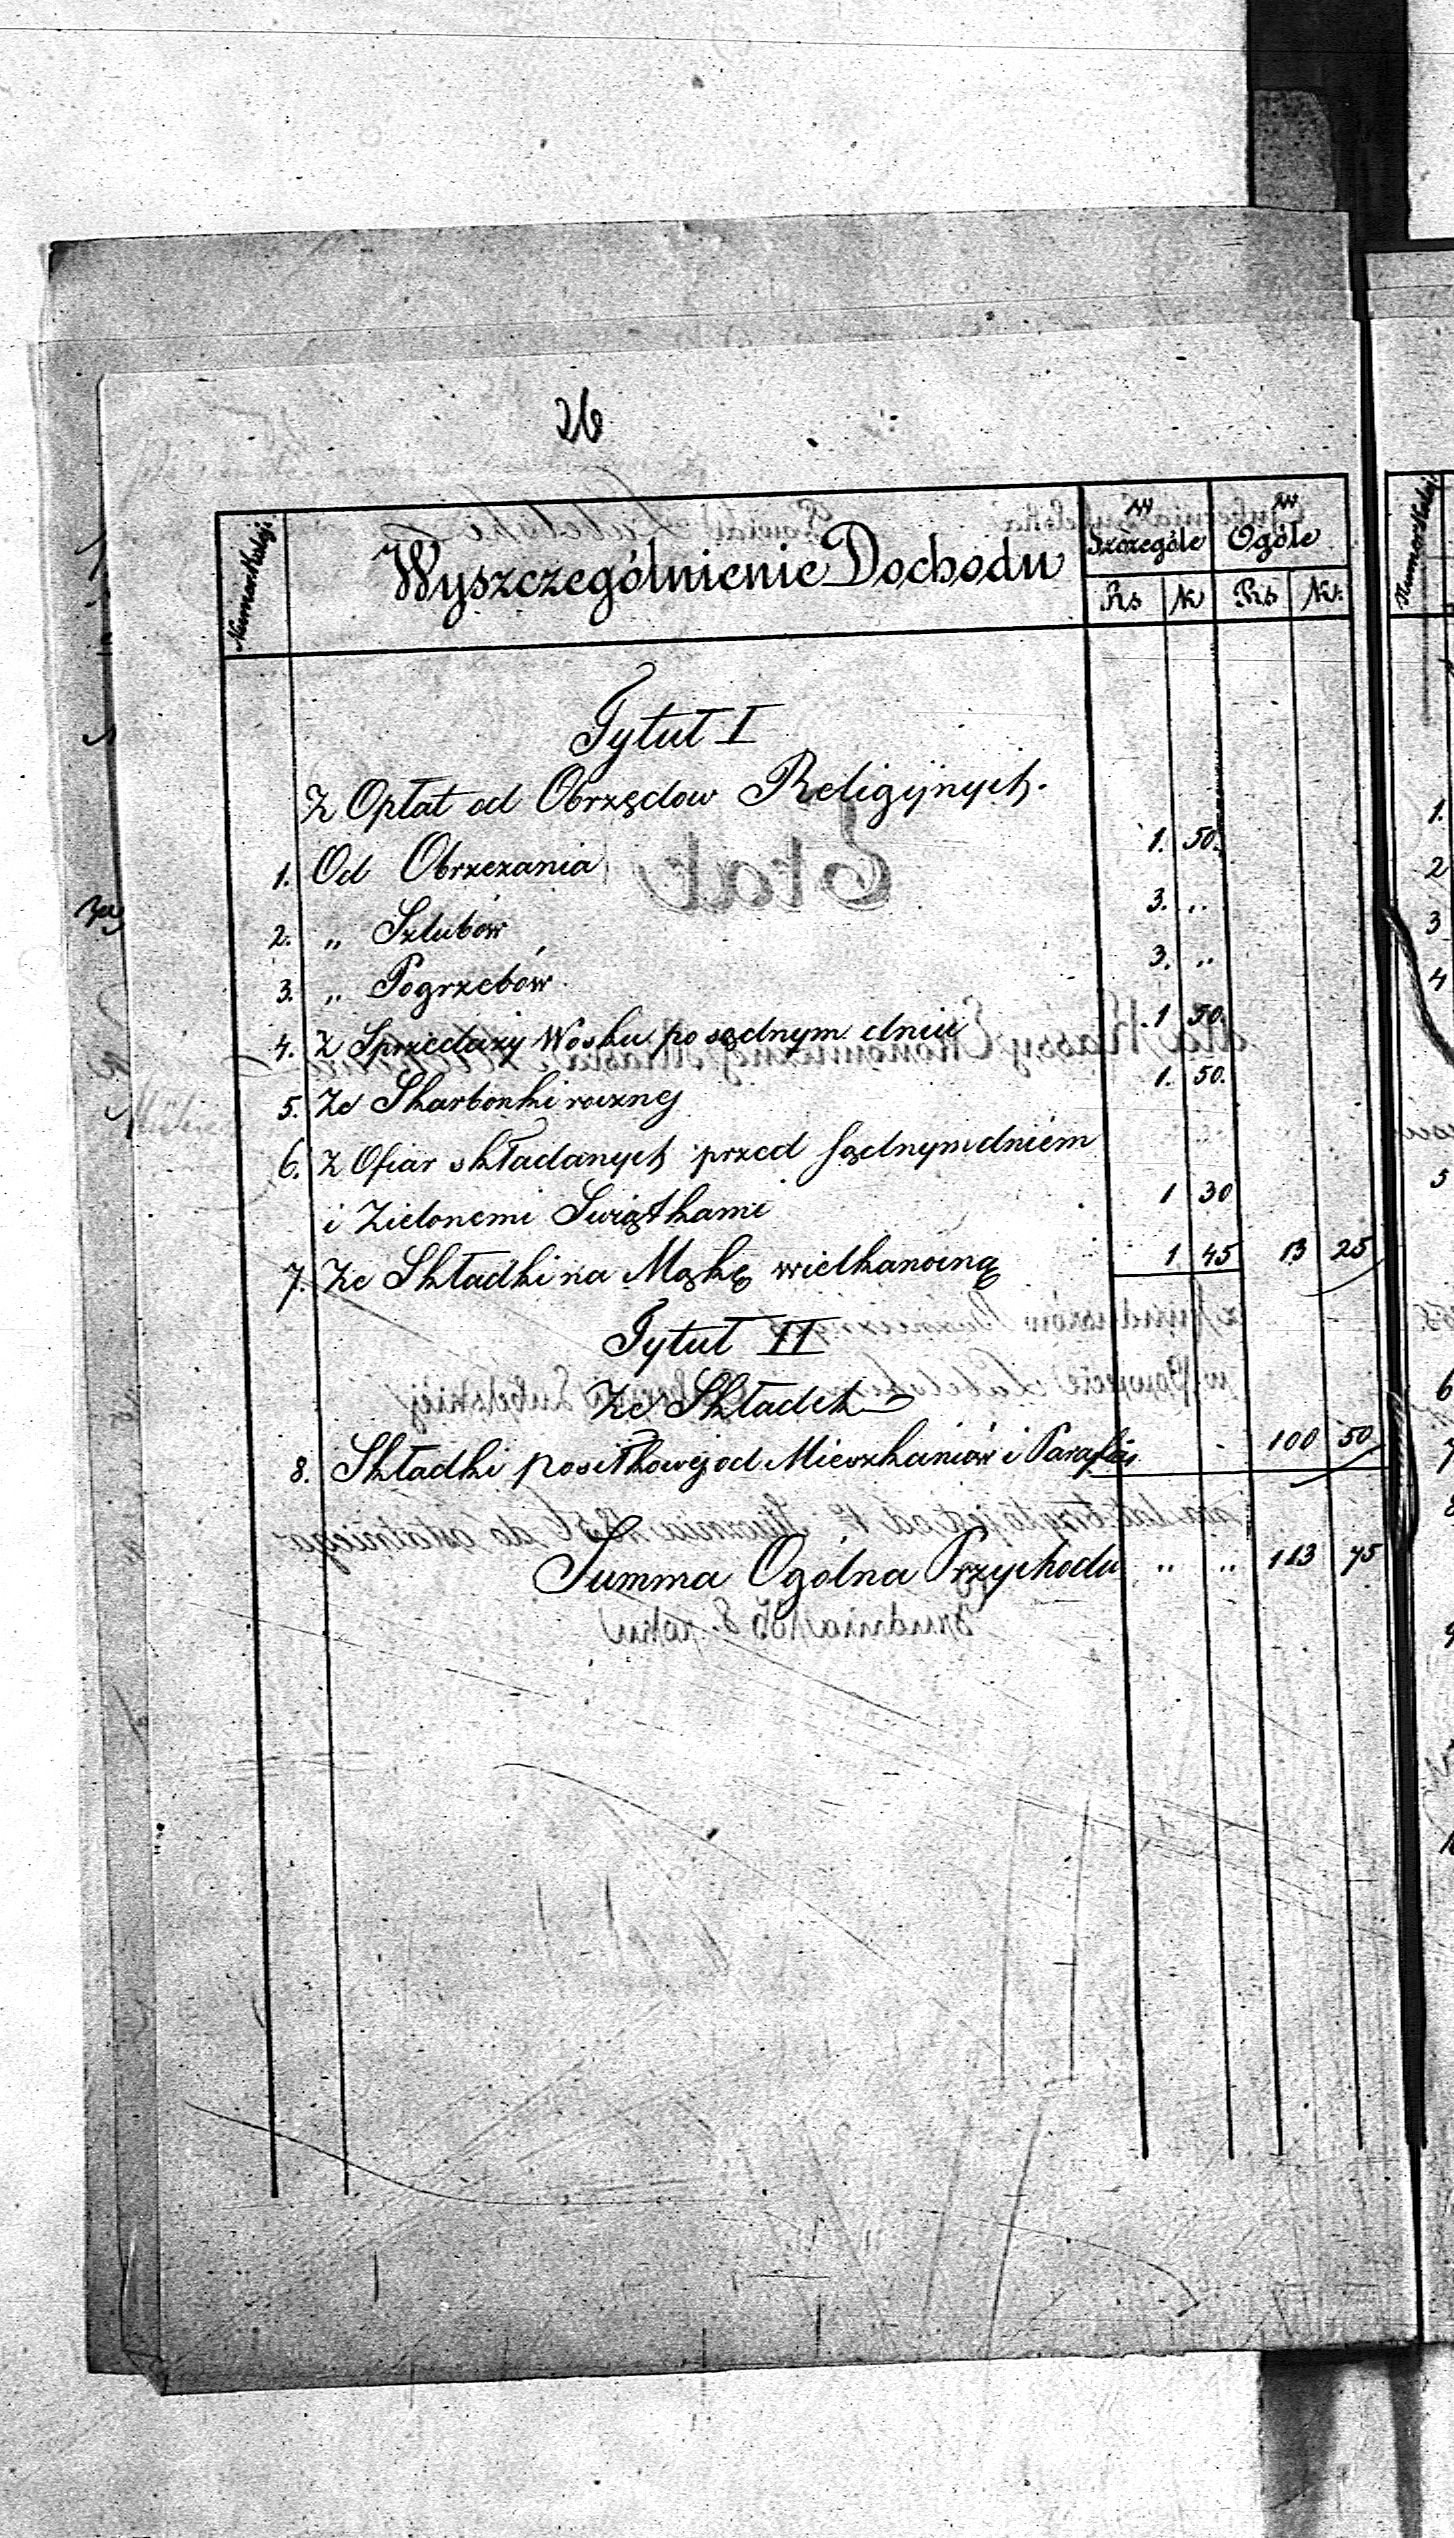 26
Numer Koleji
Wyszczególnienie Dochodu
w Szczególe
w Ogóle
Rs K Rs K.
Tytuł I
Z Opłat od Obrzędow Religijnych.
1. Od Obrzezania 1. 50.
2. „ Szlubów 3. „
3. „ Pogrzebów 3. „
4. Z Sprzedaży Wosku po sądnym dniu 1 50.
5. Ze Skarbonki rocznej 1. 50.
6. Z Ofiar składanych przed sądnym dniem
i Zielonemi Swiątkami 1 30
7. Ze Składki na Mąkę wielkanocną 1 45 13 25
Tytuł II
Ze Składek
8. Składki posiłkowej od Mieszkańców i Parafian 100 50
Summa Ogólna Przychodu „ „ 113 75